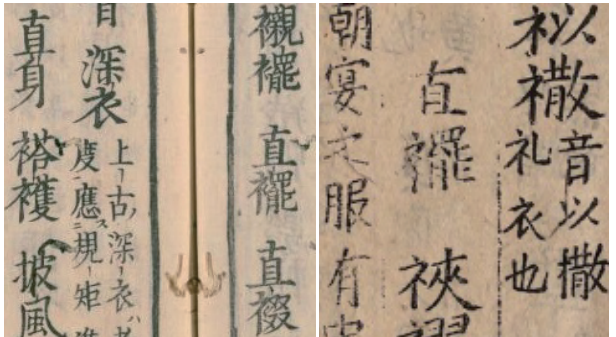 襯襬 直襬 直裰
深衣
上古ノ深衣ハ
度應ス規ニ矩
直身 褡 坡風
音以撒
礼衣也
直襬 裌
朝宴之服有